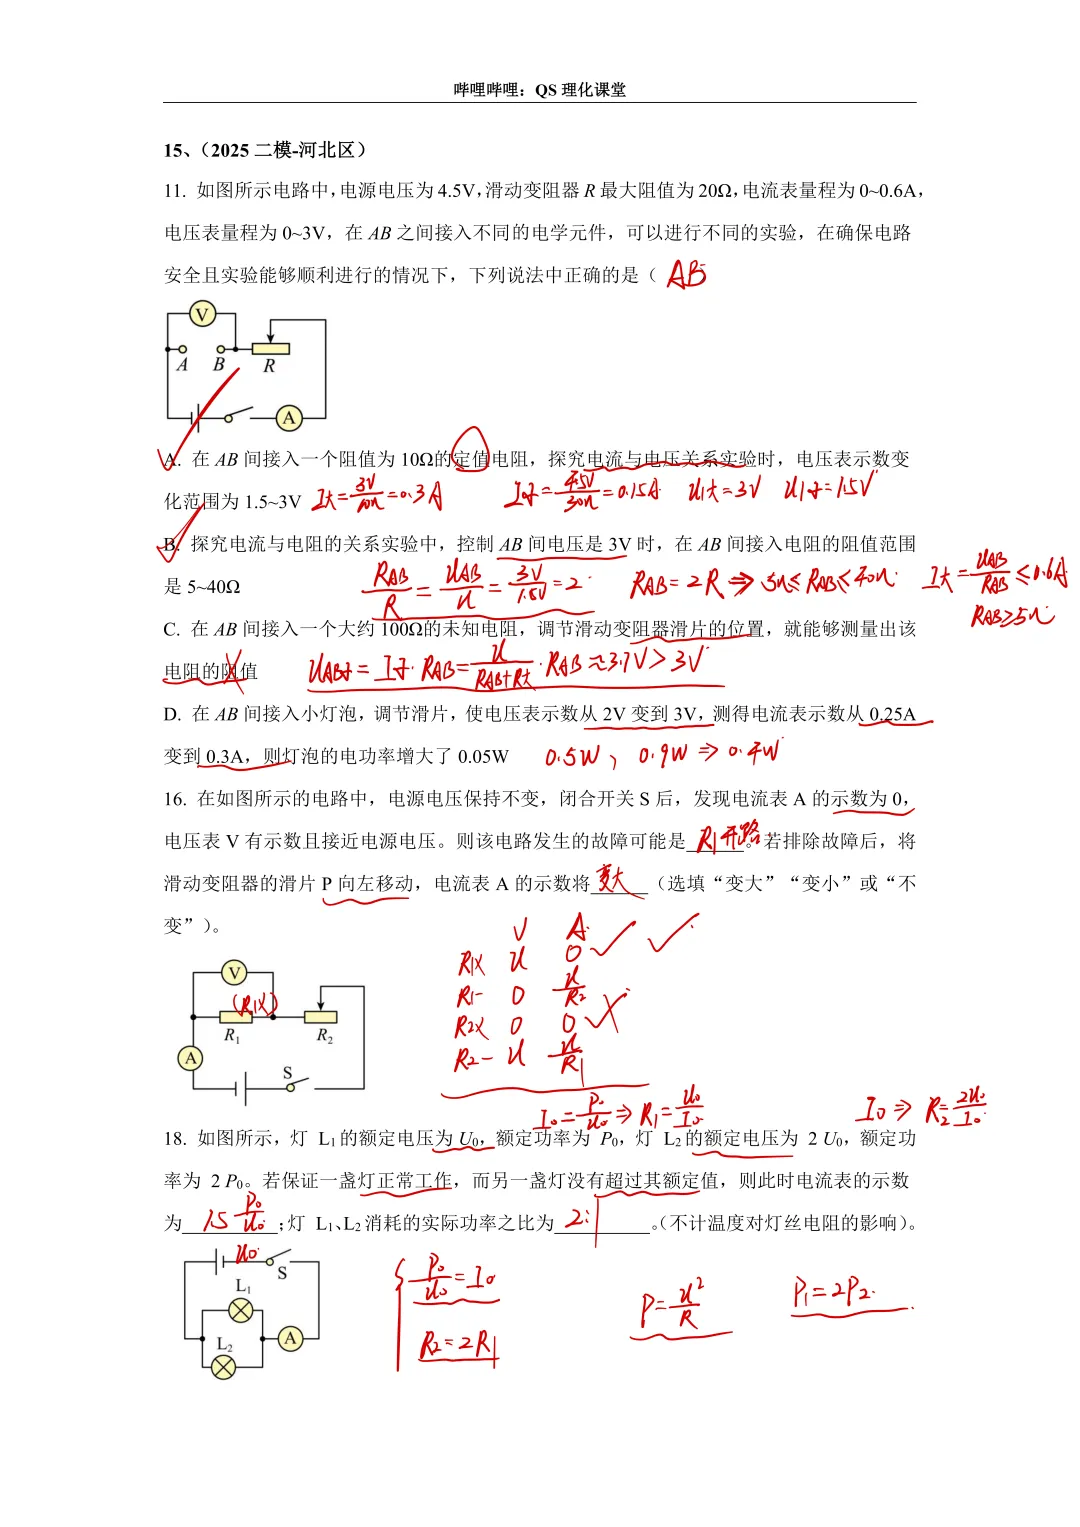 哔哩哔哩：QS 理化课堂
15、（2025 二模-河北区）
11. 如图所示电路中，电源电压为 4.5V，滑动变阻器 R 最大阻值为 20Ω，电流表量程为 0~0.6A，
电压表量程为 0~3V，在 AB 之间接入不同的电学元件，可以进行不同的实验，在确保电路
安全且实验能够顺利进行的情况下，下列说法中正确的是（ AB
V
A B R
A
A. 在 AB 间接入一个阻值为 10Ω的定值电阻，探究电流与电压关系实验时，电压表示数变
化范围为 1.5~3V I大=3V/10Ω=0.3A I小=4.5V/30Ω=0.15A U1大=3V U1小=1.5V
B. 探究电流与电阻的关系实验中，控制 AB 间电压是 3V 时，在 AB 间接入电阻的阻值范围
是 5~40Ω RAB/R=UAB/U=3V/1.5V=2 RAB=2R⇒5Ω≤RAB≤40Ω I大=UAB/RAB≤0.6A
RAB≥5Ω
C. 在 AB 间接入一个大约 100Ω的未知电阻，调节滑动变阻器滑片的位置，就能够测量出该
电阻的阻值 UAB小=I小·RAB=U/(RAB+R大)·RAB≈3.7V>3V
D. 在 AB 间接入小灯泡，调节滑片，使电压表示数从 2V 变到 3V，测得电流表示数从 0.25A
变到 0.3A，则灯泡的电功率增大了 0.05W 0.5W、0.9W⇒0.4W
16. 在如图所示的电路中，电源电压保持不变，闭合开关 S 后，发现电流表 A 的示数为 0，
电压表 V 有示数且接近电源电压。则该电路发生的故障可能是 R1开路 。若排除故障后，将
滑动变阻器的滑片 P 向左移动，电流表 A 的示数将 变大 （选填“变大”“变小”或“不
变”）。
V A
R1× U 0 ✓ ✓
R1- 0 U/R2
R2× 0 0 ×
R2- U U/R1
V
(R1×)
R1 R2
A
S
I0=P0/U0⇒R1=U0/I0 I0⇒R2=2U0/I0
18. 如图所示，灯 L1 的额定电压为 U0，额定功率为 P0，灯 L2 的额定电压为 2 U0，额定功
率为 2 P0。若保证一盏灯正常工作，而另一盏灯没有超过其额定值，则此时电流表的示数
为 1.5 P0/U0 ；灯 L1、L2 消耗的实际功率之比为 2:1 。（不计温度对灯丝电阻的影响）。
U0
S
L1
L2
A
P0/U0=I0
R2=2R1
P=U²/R
P1=2P2